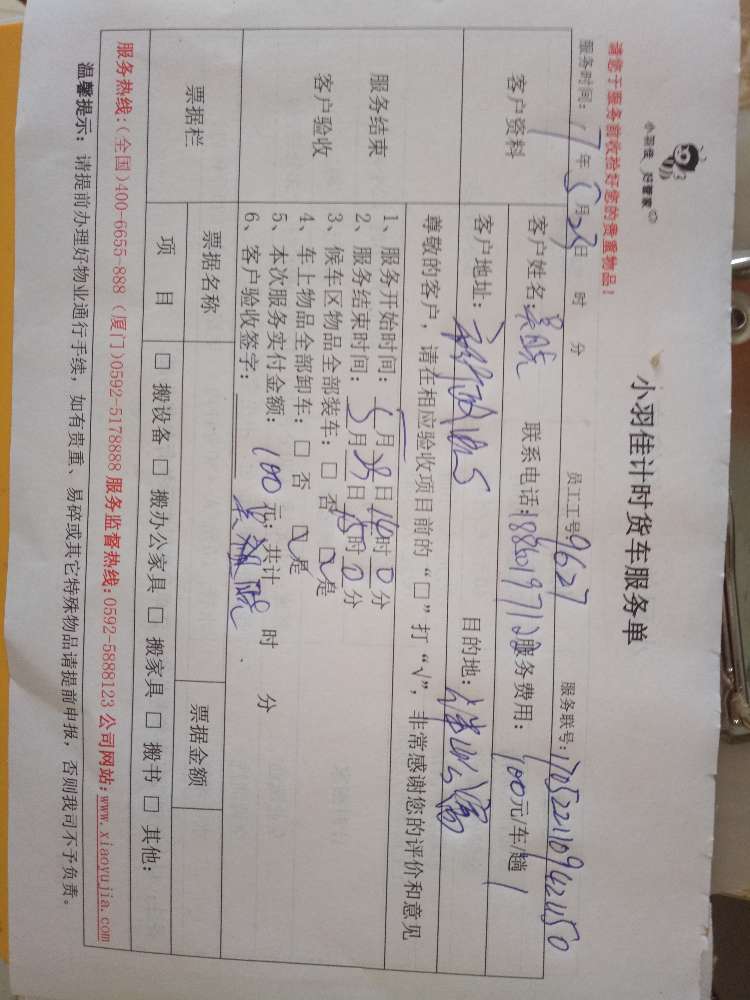 小羽佳 好管家
小羽佳计时货车服务单
请您于服务前收拾好您的贵重物品！
员工工号9627
服务联号:
服务时间: 17年5月23日 时 分
客户资料
客户姓名:
联系电话:
服务费用: 100元/车/趟
客户地址:
目的地:
尊敬的客户，请在相应验收项目前的“□”打“√”，非常感谢您的评价和意见
服务结束
客户验收
1、服务开始时间: 5月 日14时0分
2、服务结束时间: 5月 日15时0分
3、候车区物品全部装车: □ 否 是
4、车上物品全部卸车: □ 否 是
5、本次服务实付金额: 100元; 共计 时 分
6、客户验收签字:
票据栏
票据名称
票据金额
项 目
□ 搬设备 □ 搬办公家具 □ 搬家具 □ 搬书 □ 其他:
服务热线:(全国)400-6655-888 (厦门)0592-5178888 服务监督热线:0592-5888123 公司网站:www.xiaoyujia.com
温馨提示: 请提前办理好物业通行手续，如有贵重、易碎或其它特殊物品请提前申报，否则我司不予负责。